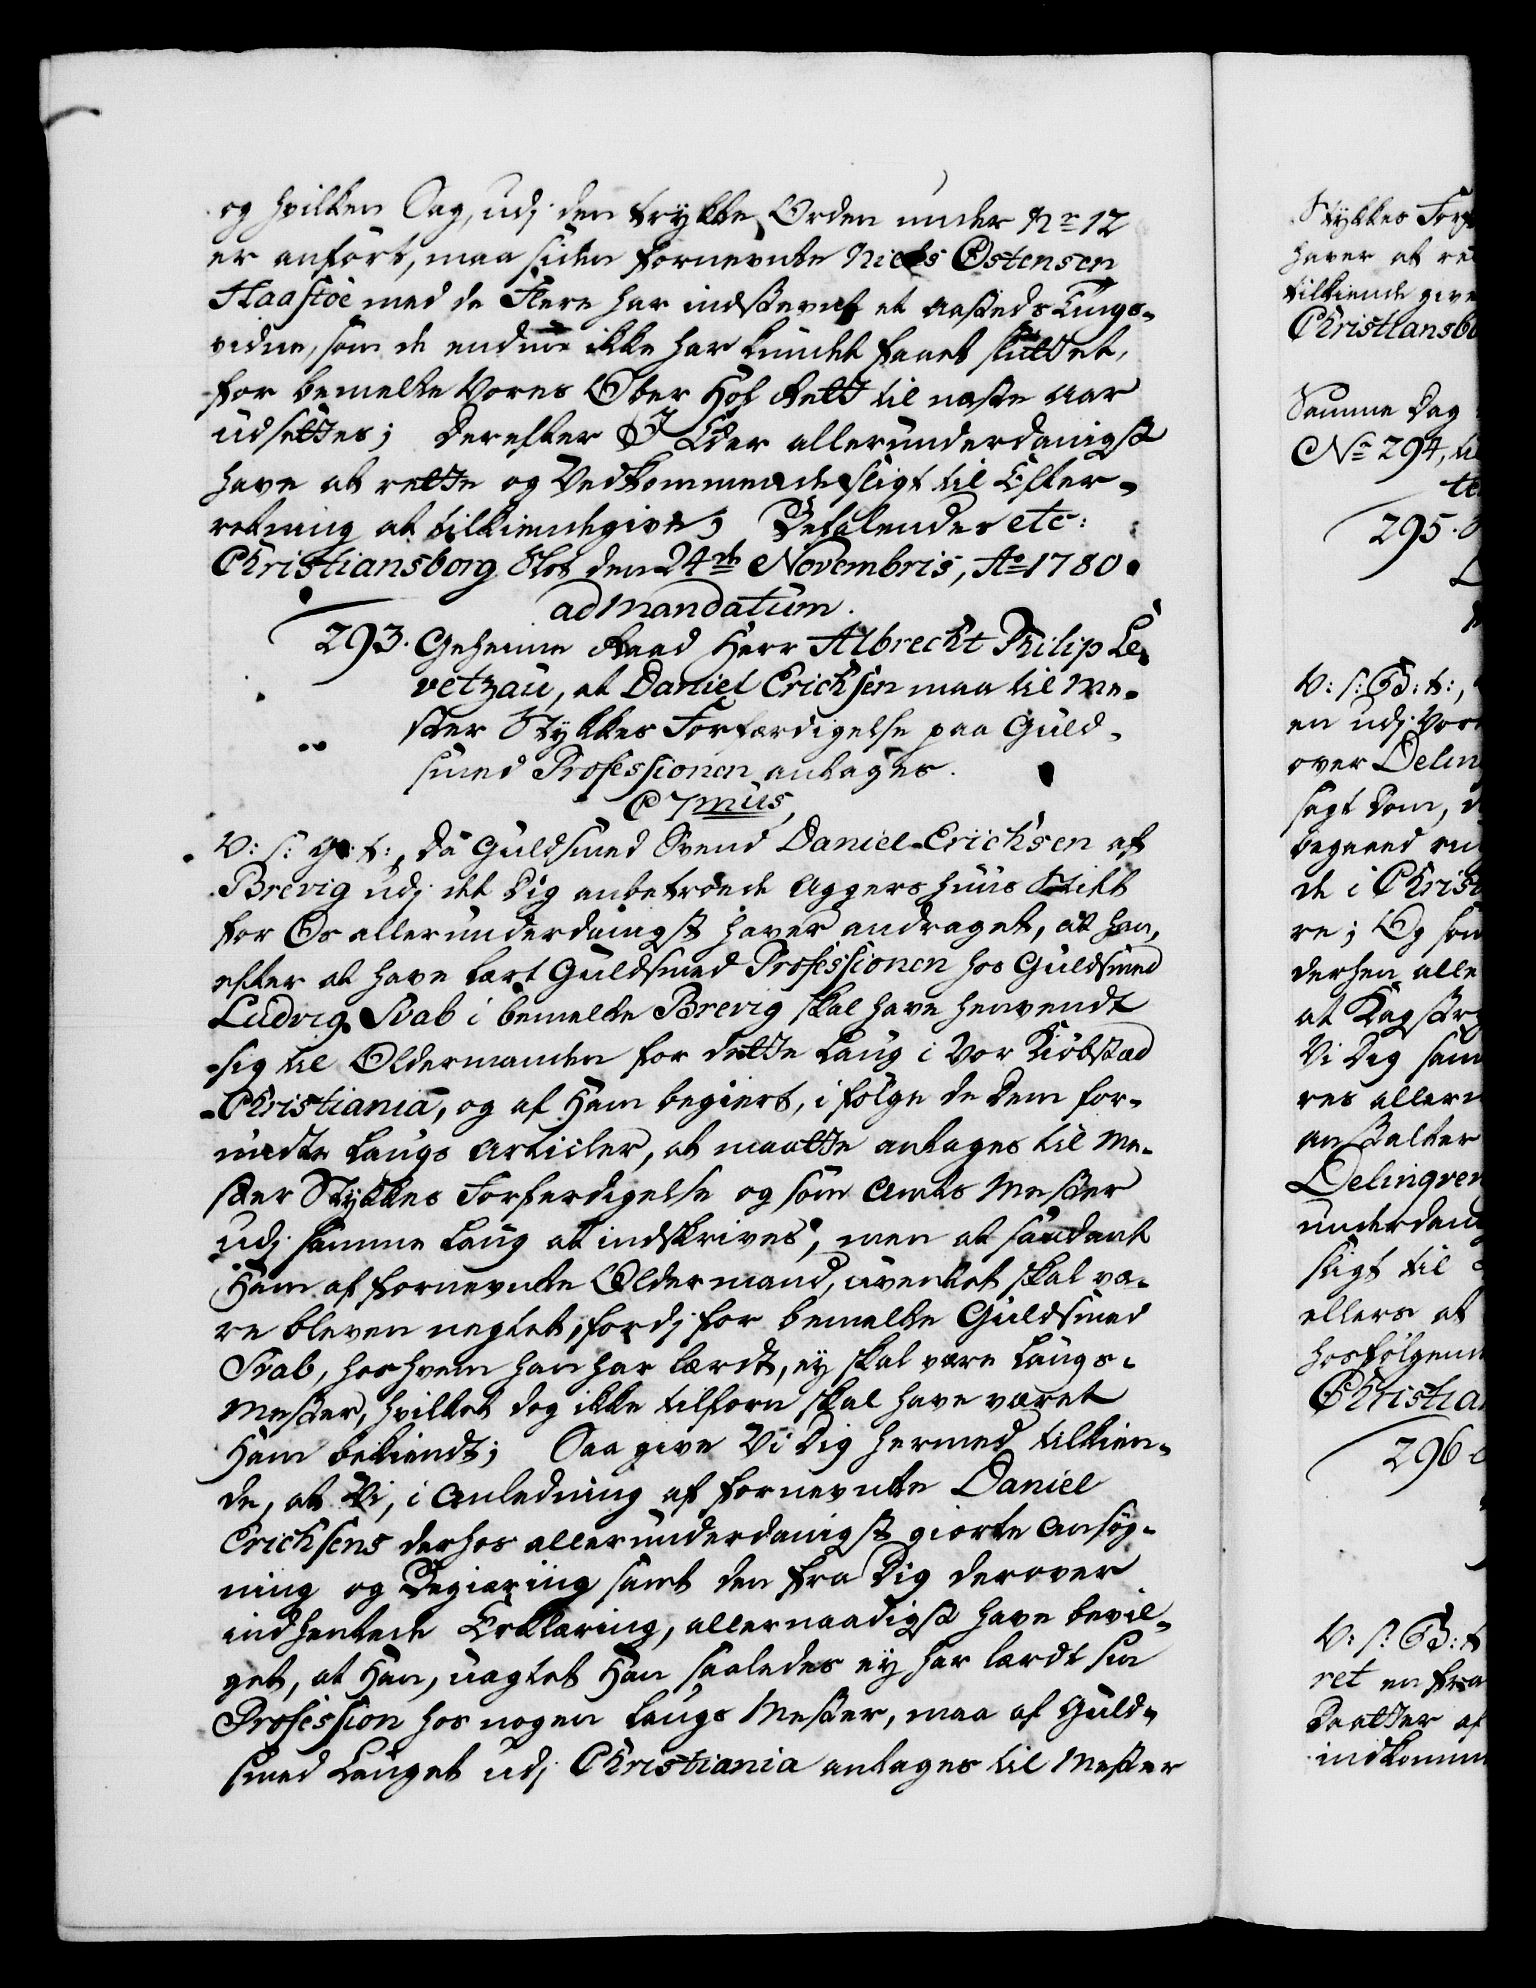 og hvilken Sag, udj den trykte Orden under No 12
er anført, maa siden fornevnte Niels Ostensen
Haastöe med de Flere har indstevnt et Aasteds Tings-
vidne, som de endnu ikke har kundet faaet sluttet,
for bemelte Vores Ober Hof Rett til næste Aar
udsettes; Derefter I Eder allerunderdanigst
have at rette og Vedkommende sligt til Efter-
retning at tilkiendegive; Befalendes etc:
Christiansborg Slot den 24de Novembris, Ao 1780.
ad Mandatum.
293. Geheime Raad Herr Albrecht Philip Le-
vetzau, at Daniel Erichsen maa til Me-
ster Stykkes Forfærdigelse paa Guld-
smed Professionen antages.
C 7mus,
V: s: G: t:, Da Guldsmed Svend Daniel Erichsen af
Brevig udj det Dig anbetroede Aggershuus Stift
for Os allerunderdanigst haver andraget, at han,
efter at have lært Guldsmed Professionen hos Guldsmed
Ludvig Svab i bemelte Brevig skal have henvendt
sig til Oldermanden for dette Laug i Vor Kiöbstæd
Christiania, og af Ham begiert, i følge de Dem for-
undte Laugs Articler, at maatte antages til Me-
ster Stykkes Forferdigelse og som Amts Mester
udj samme Laug at indskrives, men at saadant
Ham af fornevnte Oldermand, uventet skal væ-
re bleven negtet, fordj for bemelte Guldsmed
Svab, hos hvem han har lærdt, ey skal være Laugs-
Mester, hvilket dog ikke tilforn skal have været
Ham bekiendt; Saa give Vi Dig hermed tilkien-
de, at Vi, i Anledning af fornevnte Daniel
Erichsens derhos allerunderdanigst giorte Ansøg-
ning og Begiæring samt den fra Dig derover
indhentede Erklæring, allernaadigst have bevil-
get, at Han, uagtet Han saaledes ey har lærdt sin
Profession hos nogen Laugs Mester, maa af Guld-
smed Lauget udj Christiania antages til Mester
Stykkes Forf
haver at re
tilkiende give
Christiansbo
Samme Dag
No 294, til
te
295.
V: s: G: t:,
en udj Vor
over Delin
sagt Dom, d
begaaed
de i Christ
re; Og som
derhen alle
at Kagstr
Vi Dig sam
res allern
anstalter
Delingven
underdani
sligt til
ellers at
hosfølgend
Christian
296
V: s: G: t
ret en fra
Raader af
indkomm